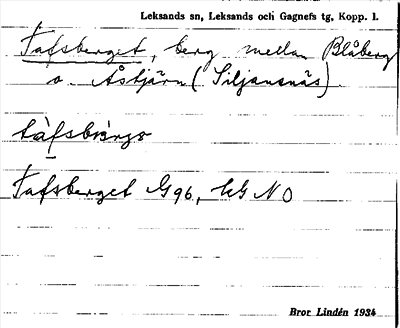 Leksands sn, Leksands och Gagnefs tg, Kopp. l.
Tafsberget, berg mellan Blåberg
o. Åstjärn (Siljansnäs).
Tafsberget G96, NO
Bror Lindén 1934